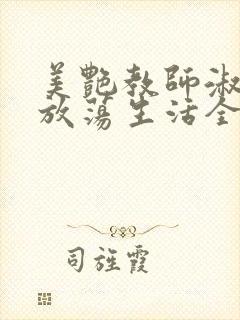 美艷教師淑
放蕩生活全
司旌霞